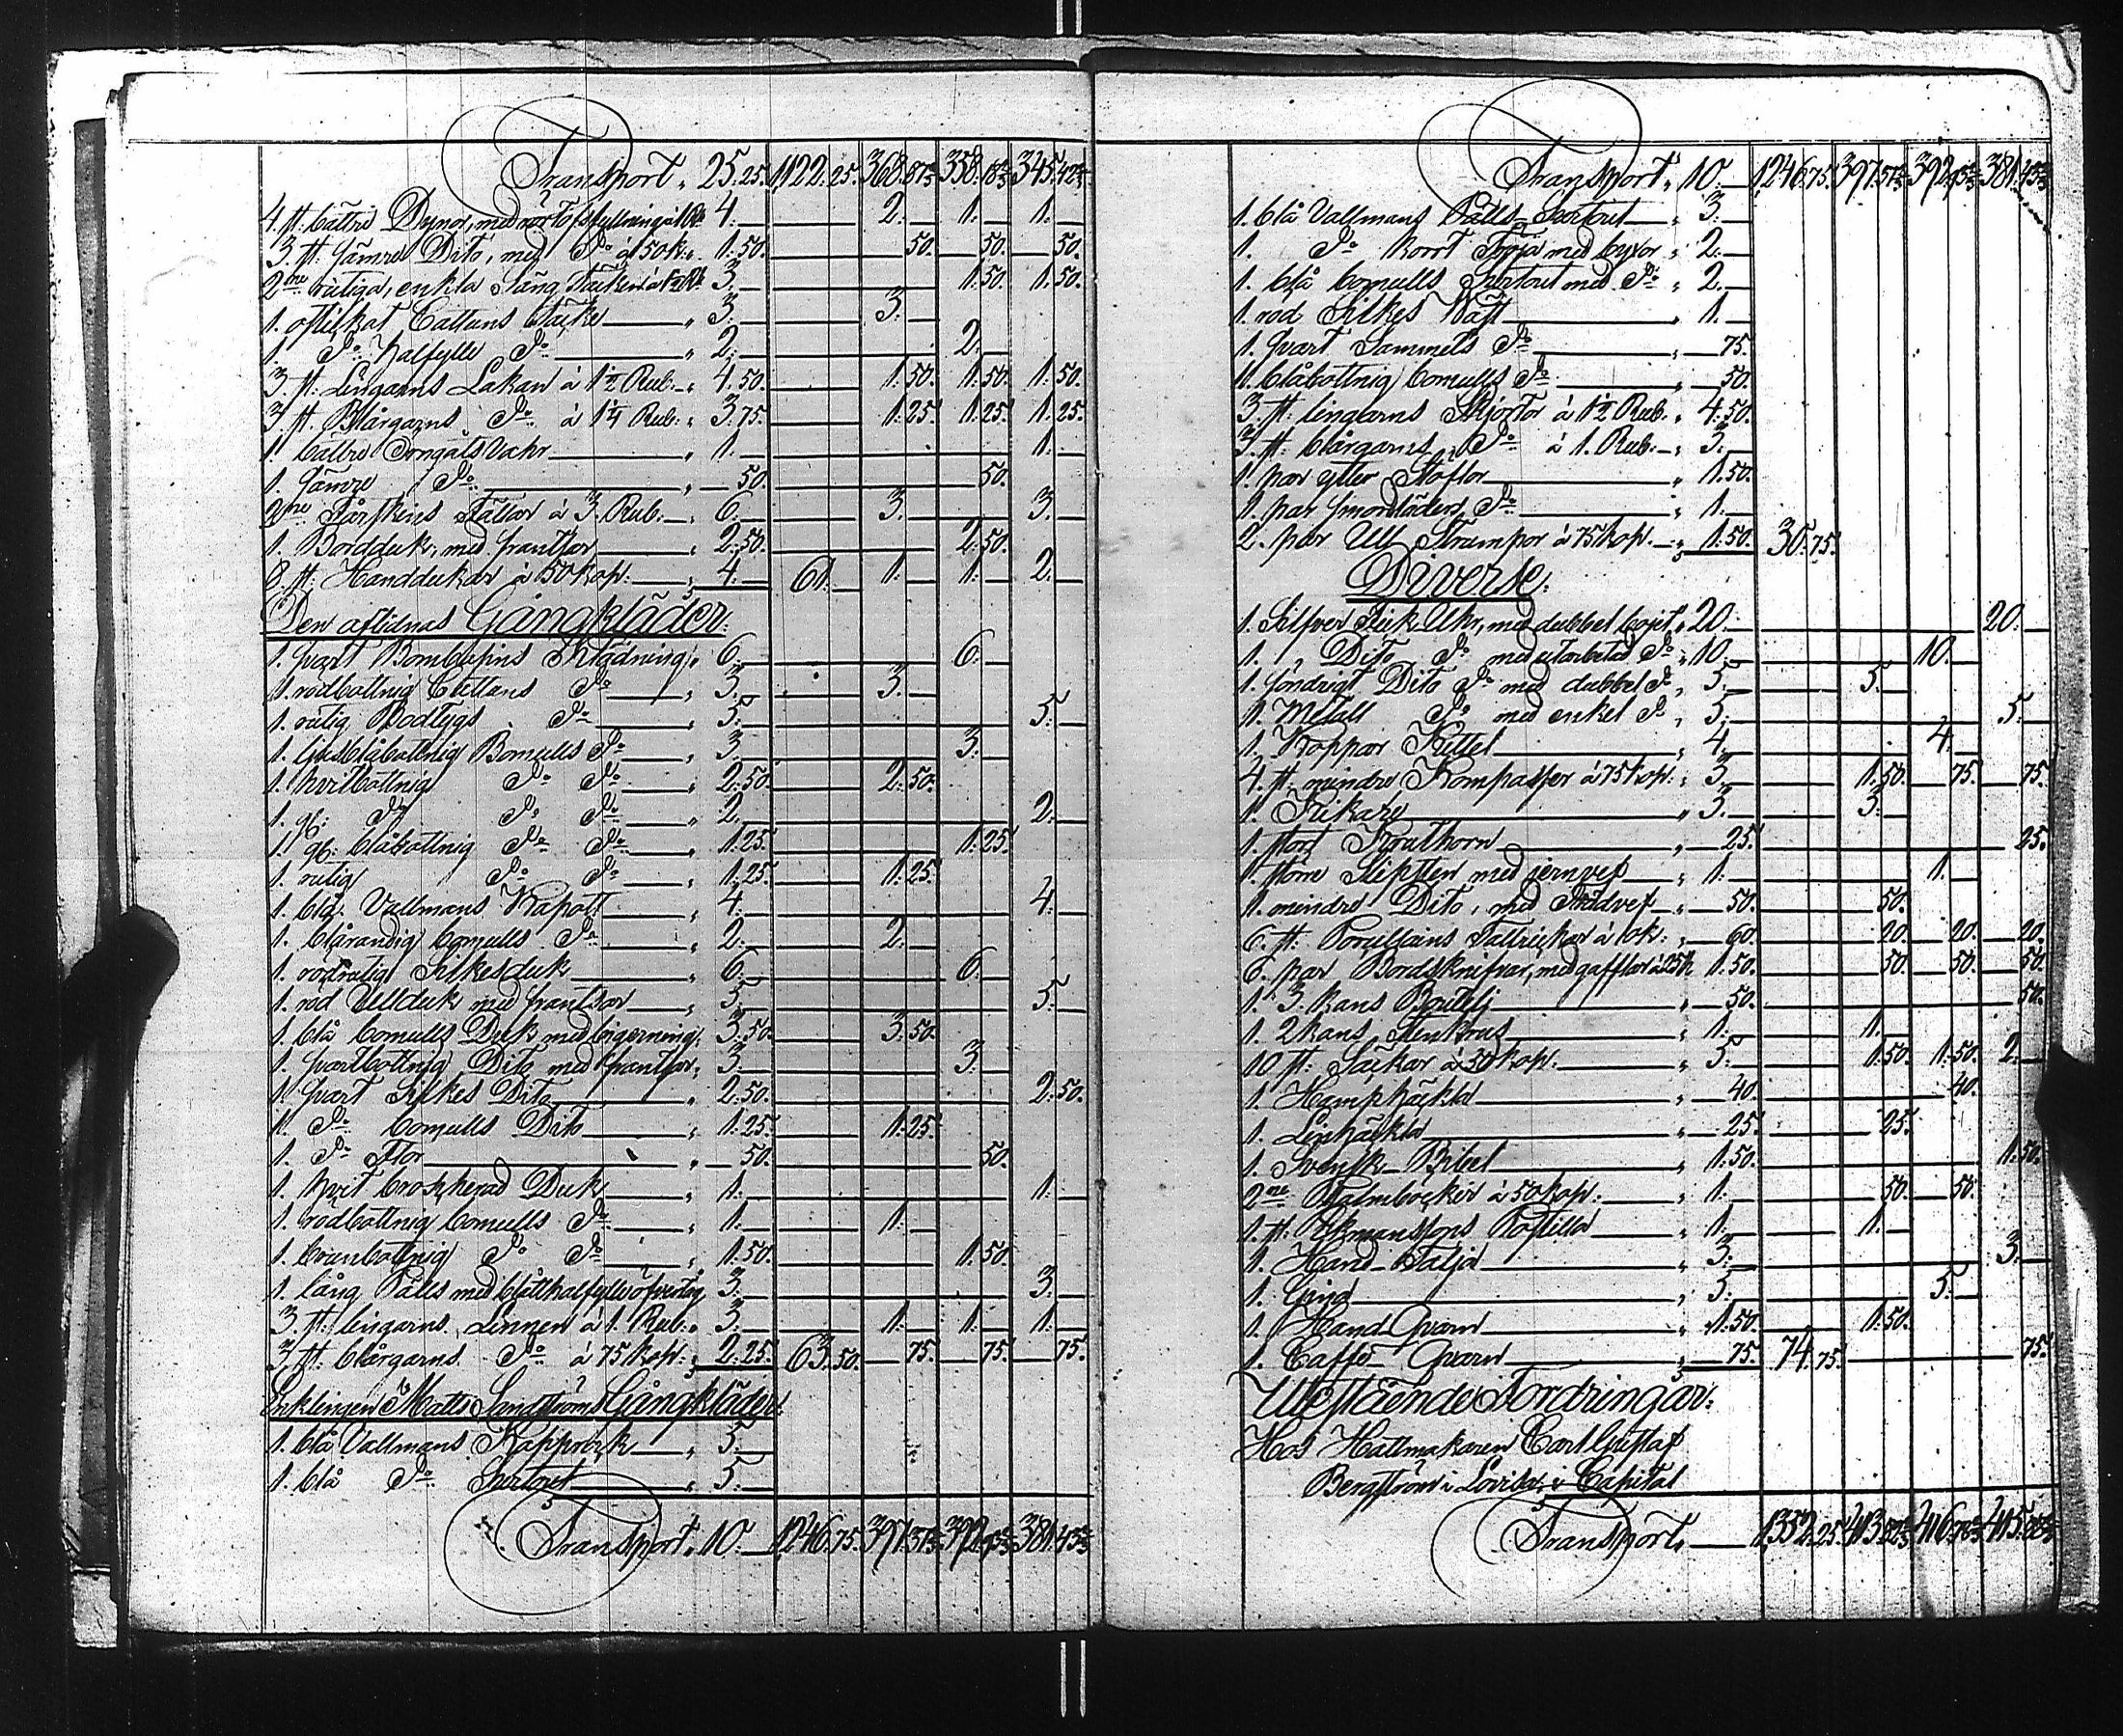 Transport „ 25. 25. 1122. 25. 368. 87⅔ 358. 18⅔ 345. 42⅔
4. st: bättre Dynor, med 4. — 2. — 1. — 1. —
3. st. sämre Dito, med Do à 50 k: „ 1. 50. 50. 50. 50.
2ne rutiga, enkla Säng Täcken à 1½ Rb. 3. — 1. 50. 1. 50.
1. ostickat Cattuns Täcke „ 3. — 3. —
1. Do Halfylle Do „ 2. — 2. —
3. st. Lingarns Lakan à 1½ Rub. „ 4. 50. 1. 50. 1. 50. 1. 50.
3. st. Blårgarns Do à 1¼ Rub: „ 3. 75. 1. 25. 1. 25. 1. 25.
1. bättre Örngåts Vahr „ 1. — 1. —
1. sämre Do „ 50. 50.
2ne Fårskins Fällar à 3. Rub. „ 6. — 3. — 3. —
1. Bordduk, med frantsar „ 2. 50. 2. 50.
8. st. Handdukar à 50 kop: „ 4. — 61. — 1. — 1. — 2. —
Den aflidnas Gångkläder:
1. svart Bombasins Klädning „ 6. — 6. —
1. rödbottnig Cattuns Do „ 3. — 3. —
1. rutig Bodtygs Do „ 5. — 5. —
1. ljusblåbottnig Bomulls Do „ 3. — 3. —
1. hvitbottnig Do Do „ 2. 50. 2. 50.
1. gl: Do Do Do „ 2. — 2. —
1. gl: blåbottnig Do Do „ 1. 25. 1. 25.
1. rutig Do Do „ 1. 25. 1. 25.
1. blå Vallmans Kapott „ 4. — 4. —
1. blårandig bomulls Do „ 2. — 2. —
1. rödrutig Silkesduk „ 6. — 6. —
1. röd Ullduk med frantsar „ 5. — 5. —
1. blå bomulls Duk med bigerning „ 3. 50. 3. 50.
1. svartbottnig Dito med frantsar „ 3. — 3. —
1. svart Silkes Dito „ 2. 50. 2. 50.
1. Do bomulls Dito „ 1. 25. 1. 25.
1. Do Flor „ 50. 50.
1. hvit Duk „ 1. — 1. —
1. rödbottnig bomulls Do „ 1. — 1. —
1. brunbottnig Do Do „ 1. 50. 1. 50.
1. lång Päls med blått halfylle öfvertyg 3. — 3. —
3. st. lingarns Linnen à 1. Rub. „ 3. — 1. — 1. — 1. —
3. st. blårgarns Do à 75 kop: „ 2. 25. 63. 50. 75. 75. 75.
Enklingen Matts Sandströms Gångkläder:
1. blå Vallmans Kapprock „ 5. —
1. blå Do Sortout „ 5. —
Transport „ 10. — 1246. 75. 397. 37⅔ 392. 93⅔ 381. 43⅔
Transport „ 10. — 1246. 75. 397. 37⅔ 392. 93⅔ 381. 43⅔
1. blå Vallmans Päls Sortout „ 3. —
1. Do kort Tröja med byxor „ 2. —
1. blå bomulls Sortout med Do „ 2. —
1. röd Silkes Väst „ 1. —
1. svart Sammets Do „ 75.
1. blåbottnig bomulls Do „ 50.
3. st. lingarns Skjortor à 1½ Rub. „ 4. 50.
3. st. blårgarns Do à 1. Rub. „ 3. —
1. par ytter Stöflor „ 1. 50.
1. par smordläders Do „ 1. —
2. par Ull Strumpor à 75 kop. „ 1. 50. 30. 75.
Diverse:
1. Silfver Fick Uhr, med dubbel bojet „ 20. — 20. —
1. Dito Do med utarbetad Do „ 10. — 10. —
1. söndrigt Dito Do med dubbel Do „ 5. — 5. —
1. Metall Do med enkel Do „ 5. — 5. —
1. Koppar Kittel „ 4. — 4. —
4. st. mindre Kompasser à 75 kop: „ 3. — 1. 50. 75. 75.
1. Kikare „ 3. — 3. —
1. stort Kruthorn „ 25. 25.
1. större Slipsten med jernvef „ 1. — 1. —
1. mindre Dito, med Trädvef „ 50. 50.
6. st. Porcellains Tallrickar à 10 k: „ 60. 20. 20. 20.
6. par Bordsknifvar, med gafflar à 25 k 1. 50. 50. 50. 50.
1. 3. kans Boutelj „ 50. 50.
1. 2 kans Stenkrus „ 1. — 1. —
10. st. Säckar à 50 kop. „ 5. — 1. 50. 1. 50. 2. —
1. Hamphäckla „ 40. 40.
1. Linhäckla „ 25. 25.
1. Svensk Bibel „ 1. 50. 1. 50.
2ne Psalmböcker à 50 kop: „ 1. — 50. 50.
1. st. Ekmanssons Postilla „ 1. — 1. —
1. Hand Talja „ 3. — 3. —
1. Gina „ 5. — 5. —
1. Hand Qvarn „ 1. 50. 1. 50.
1. Caffe Qvarn „ 75. 74. 75. 75.
Utestående Fordringar:
Hos Hattmakaren Carl Gustaf
Bergström i Lovisa, i Capital
Transport „ — 1352. 25. 413. 416. 415.